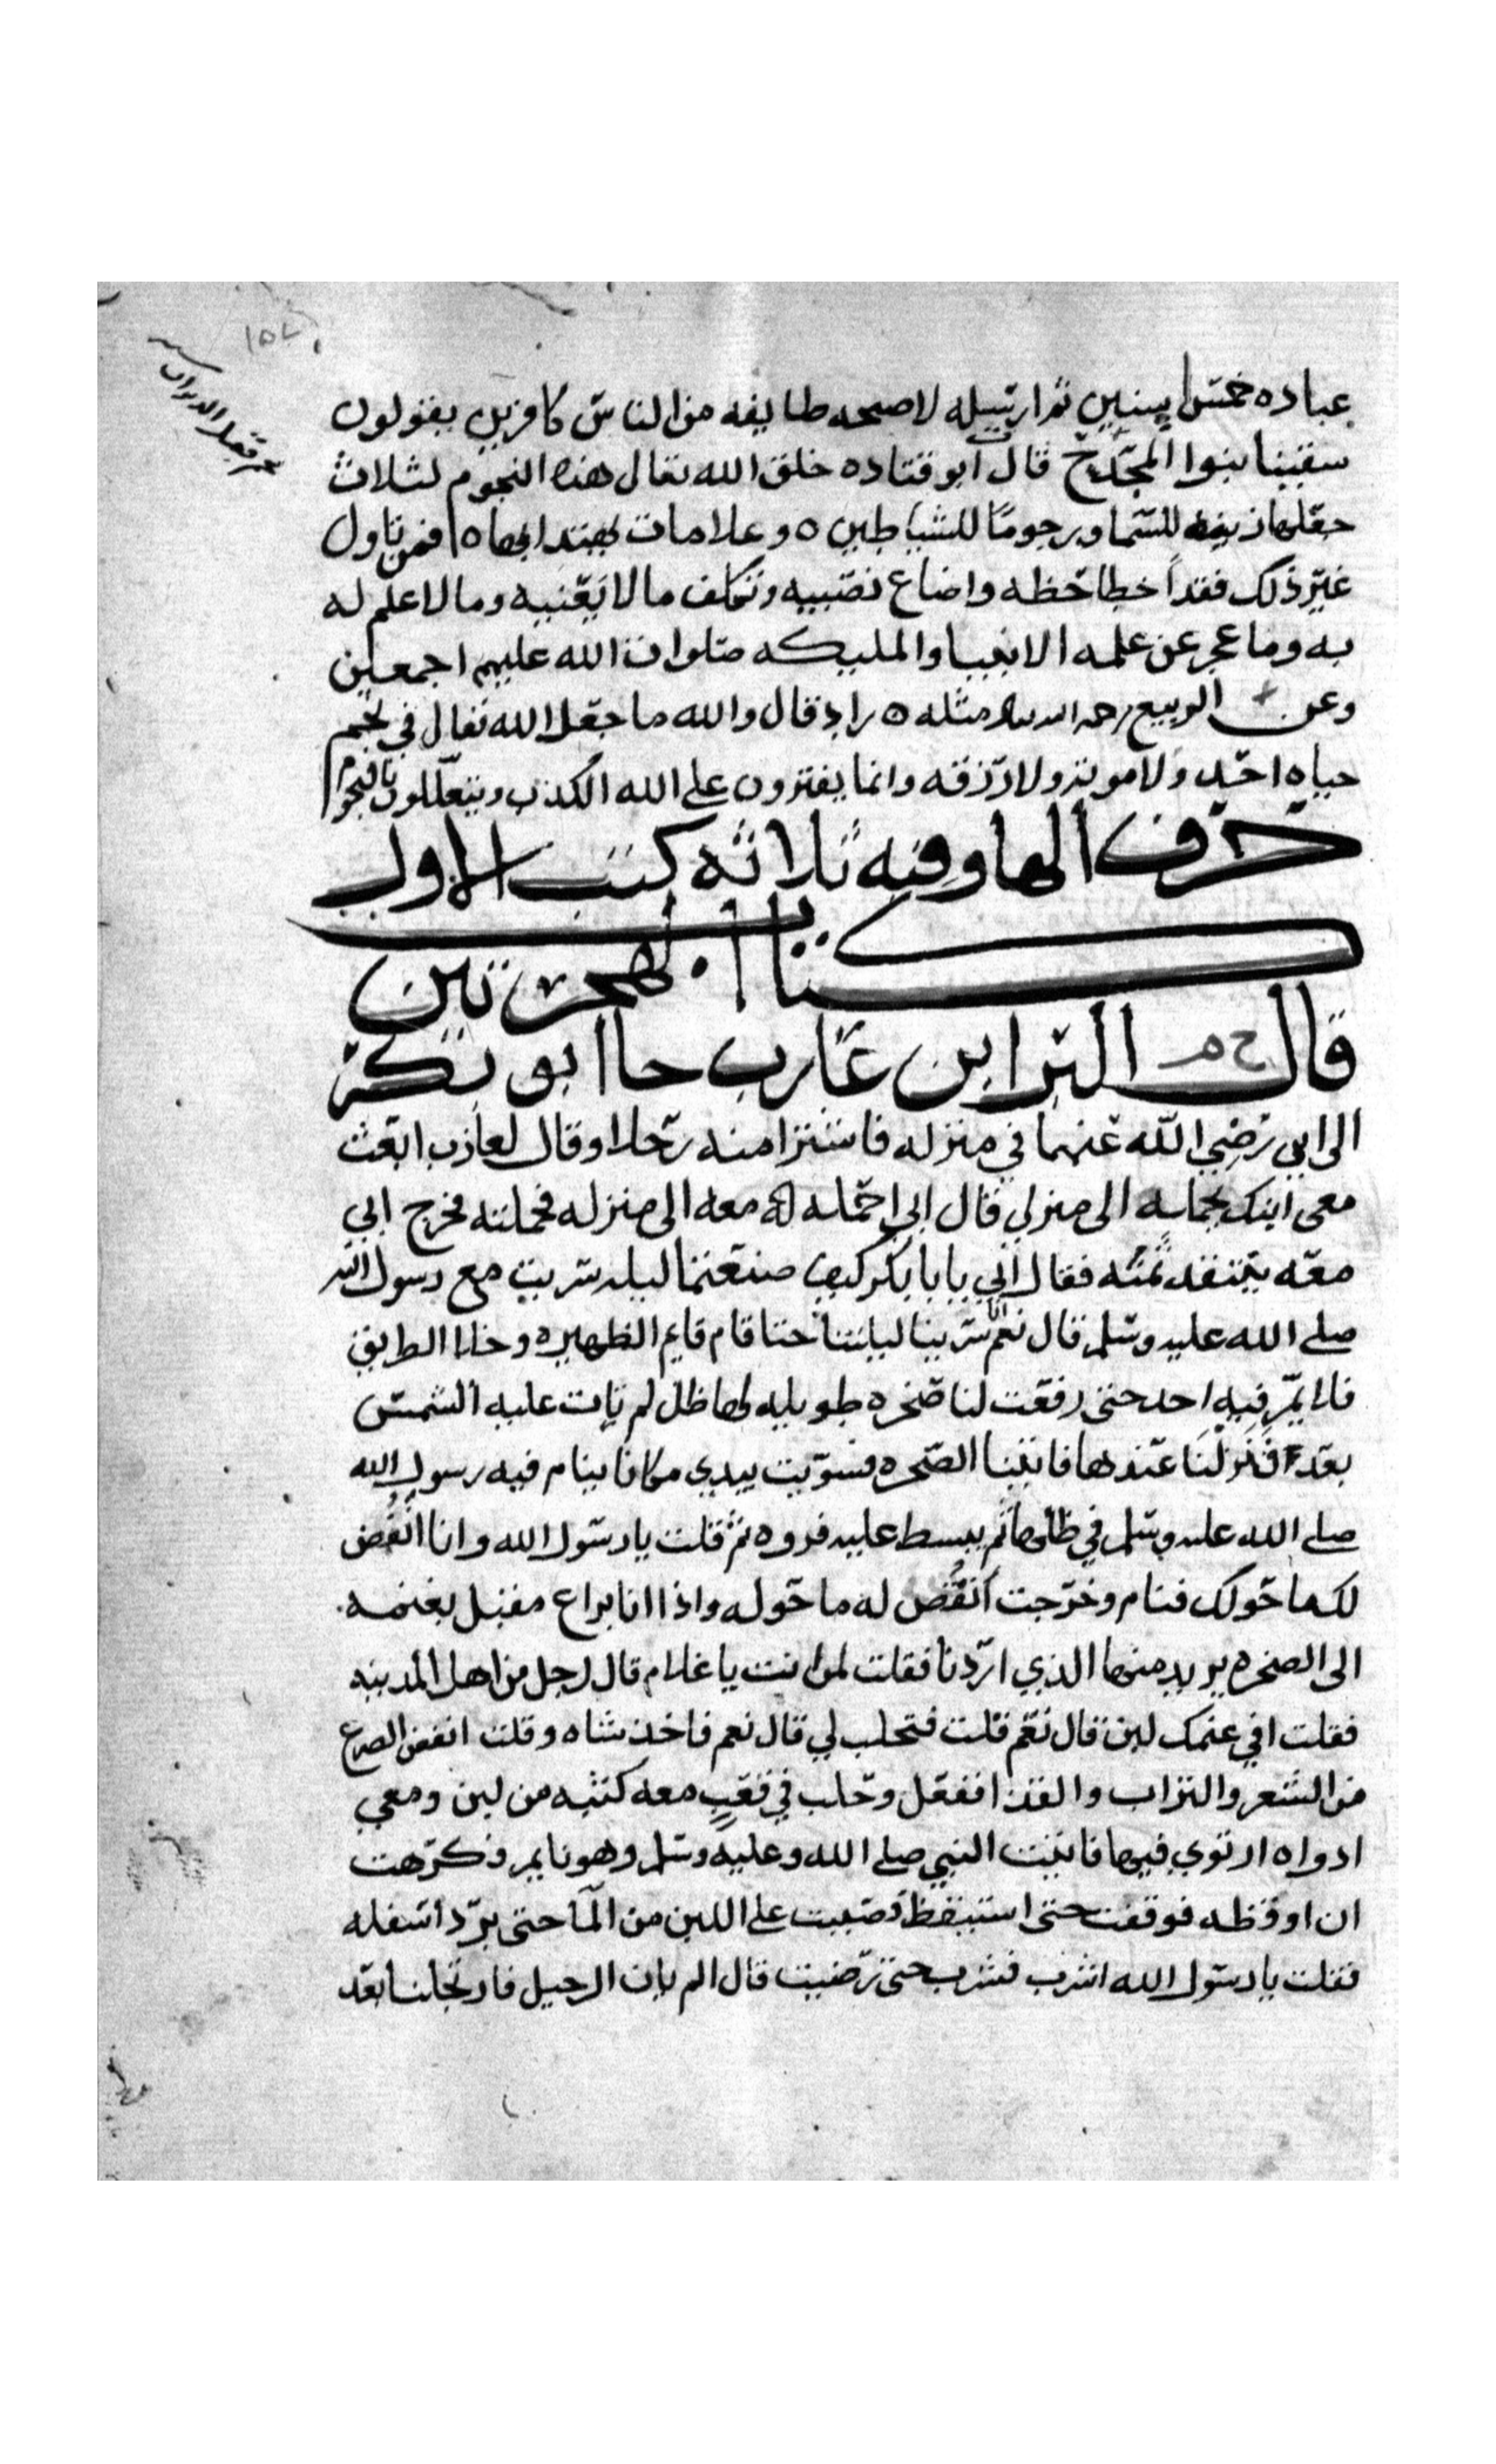 عباده خمس سنين ثم ارسله لاصبحه طايفه من الناس كافرين يقولون
سقينا بنوا المجدح قال ابو قتاده خلق الله تعالى هذه النجوم لثلاث
جعلها زينه للسما ورجوما للشياطين ه وعلامات يهتدا بها ه فمن تاول
غير ذلك فقد اخطا حظه واضاع نصيبه وتكلف ما لا يعنيه وما لا علم له
به وما عجز عن علمه الانبيا والمليكه صلوات الله عليهم اجمعين
وعن الربيع مثله ه زاد قال والله ما جعل الله تعالى في نجم
حياه احد ولا موته ولا رزقه وانما يفترون على الله الكذب ويتعللون بالنجوم
حرف الها وفيه ثلاثه كتب الاول
كتاب الهجرتين
قال خ م البرا ابن عازب جا ابو بكر
الى ابي رضي الله عنهما في منزله فاشترا منه رحلا وقال لعازب ابعث
معي ابنك يحمله الى منزلي قال ابي احمله له معه الى منزله فحملته فخرج ابي
معه ينتقد ثمنه فقال ابي يا با بكر كيف صنعتما ليله سريت مع رسول الله
صلى الله عليه وسلم قال نعم انا سرينا ليلتنا حتا قام قايم الظهيره وخلا الطريق
فلا يمر فيه احد حتى رفعت لنا صخره طويله لها ظل لم تات عليه الشمس
بعد فنزلنا عندها فاتينا الصخره فسويت بيدي مكانا ينام فيه رسول الله
صلى الله عليه وسلم في ظلها ثم بسط عليه فروه ثم قلت يا رسول الله وانا انفض
لك ما حولك فنام وخرجت انفض له ما حوله واذا انا براع مقبل بغنمه
الى الصخره يريد منها الذي اردنا فقلت لمن انت يا غلام قال لرجل من اهل المدينه
فقلت افي غنمك لبن قال نعم قلت فتحلب لي قال نعم فاخذ شاه وقلت انفض الضرع
من الشعر والتراب والقذا ففعل وحلب في قعب معه كثبه من لبن ومعي
ادواه ارتوي فيها فاتيت النبي صلى الله وعليه وسلم وهو نايم وكرهت
ان اوقظه فوقفت حتى استيقظ وصببت على اللبن من الما حتى برد اسفله
فقلت يا رسول الله اشرب فشرب حتى رضيت قال الم يان الرحيل فارتحلنا بعد